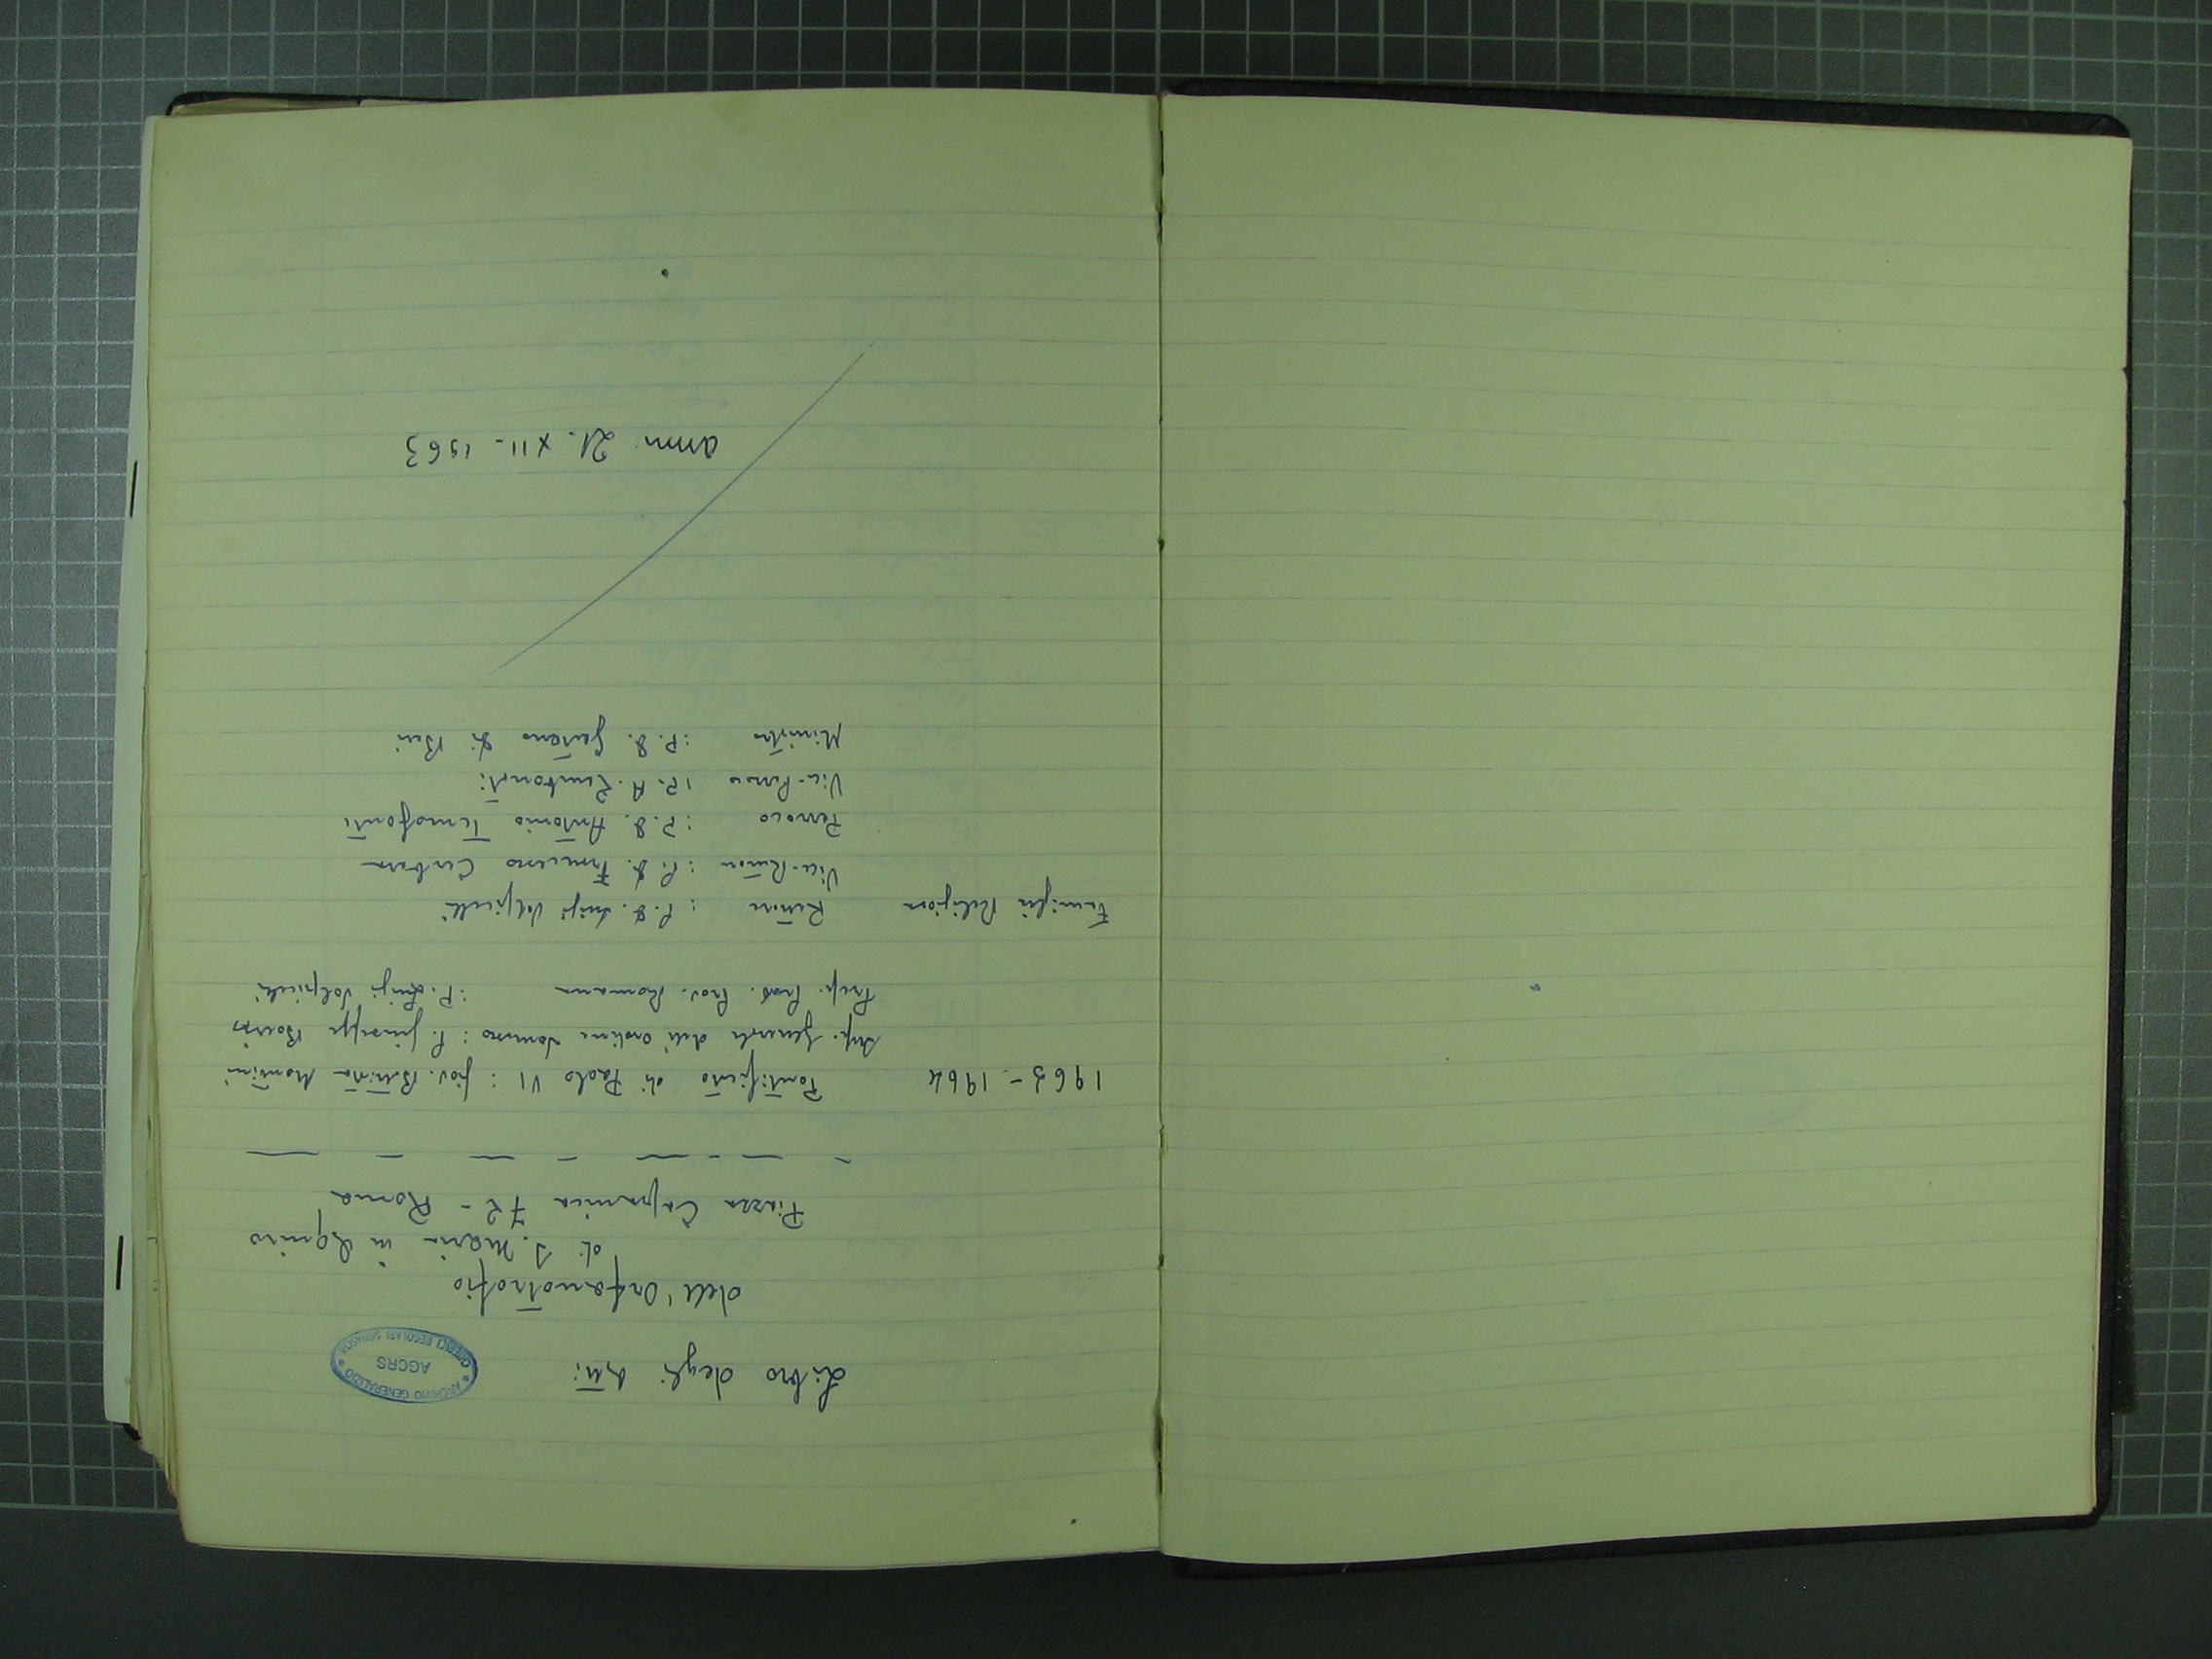 Libro degli Atti
ARCHIVIO GENERALIZIO
AGCRS
CHIERICI REGOLARI SOMASCHI
dell'Orfanotrofio
di S. Maria in Aquiro
Piazza Capranica 72 - Roma
1963-1964 Pontificato di Paolo VI : Giov. Battista Montini
Sup. Generale dell'Ordine Somasco : P. Giuseppe Boeris
Prep. Prov. Prov. Romana : P. Luigi Volpicelli
Famiglia Religiosa Rettore : P. D. Luigi Volpicelli
Vice-Rettore : P. D. Francesco Cerbara
Parroco : P. D. Antonio Temofonte
Vice-Parroco : P. A. Zambonati
Ministro : P. D. Gaetano Di Bari
21. XII. 1963